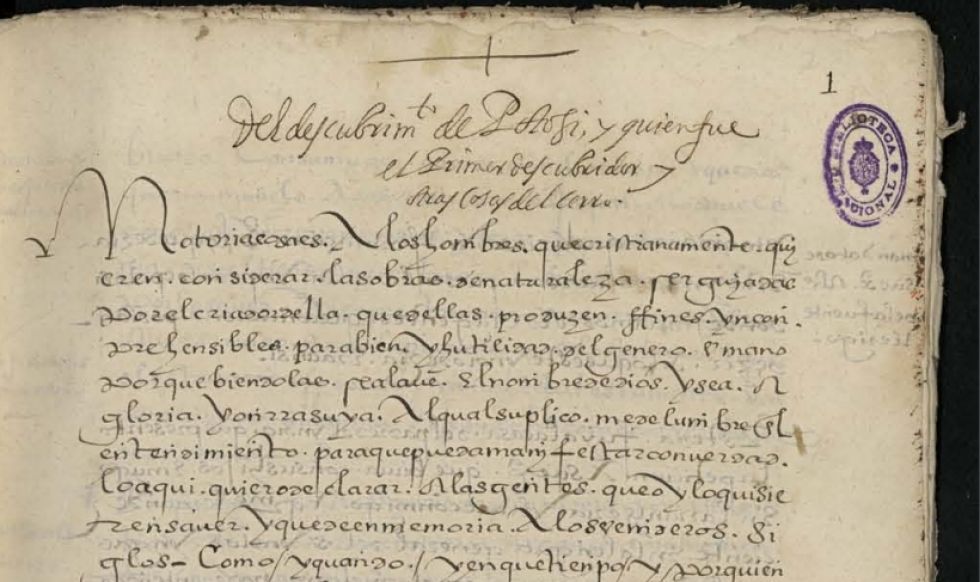 1
Del descubrim.to de Potosi, y quien fue
el Primer descubridor y
otras cosas del cerro.
BIBLIOTECA NACIONAL
Notoria cossa es. A los hombres. que cristianamente. qui
eren. considerar. las obras. de naturaleza. ser guiadas
por el criador della. que dellas. produzen. ffines. yncon.
prehensibles. para bien. y hutilidad. del genero. Umano
porque biendolas. se alave. El nonbre de dios. y sea. A
gloria. y onrra suya. Al qual suplico. me de lunbre El
entendimiento. para que pueda manifestar con verdad.
lo aqui. quiero declarar. A las gentes. que oy lo quisie
ren saver. y quede en memoria. A los venideros. Si
glos- Como y quando. y en que tienpo y por quien